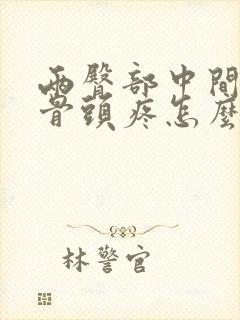 兩臀部中間
骨頭疼怎麼
林警官